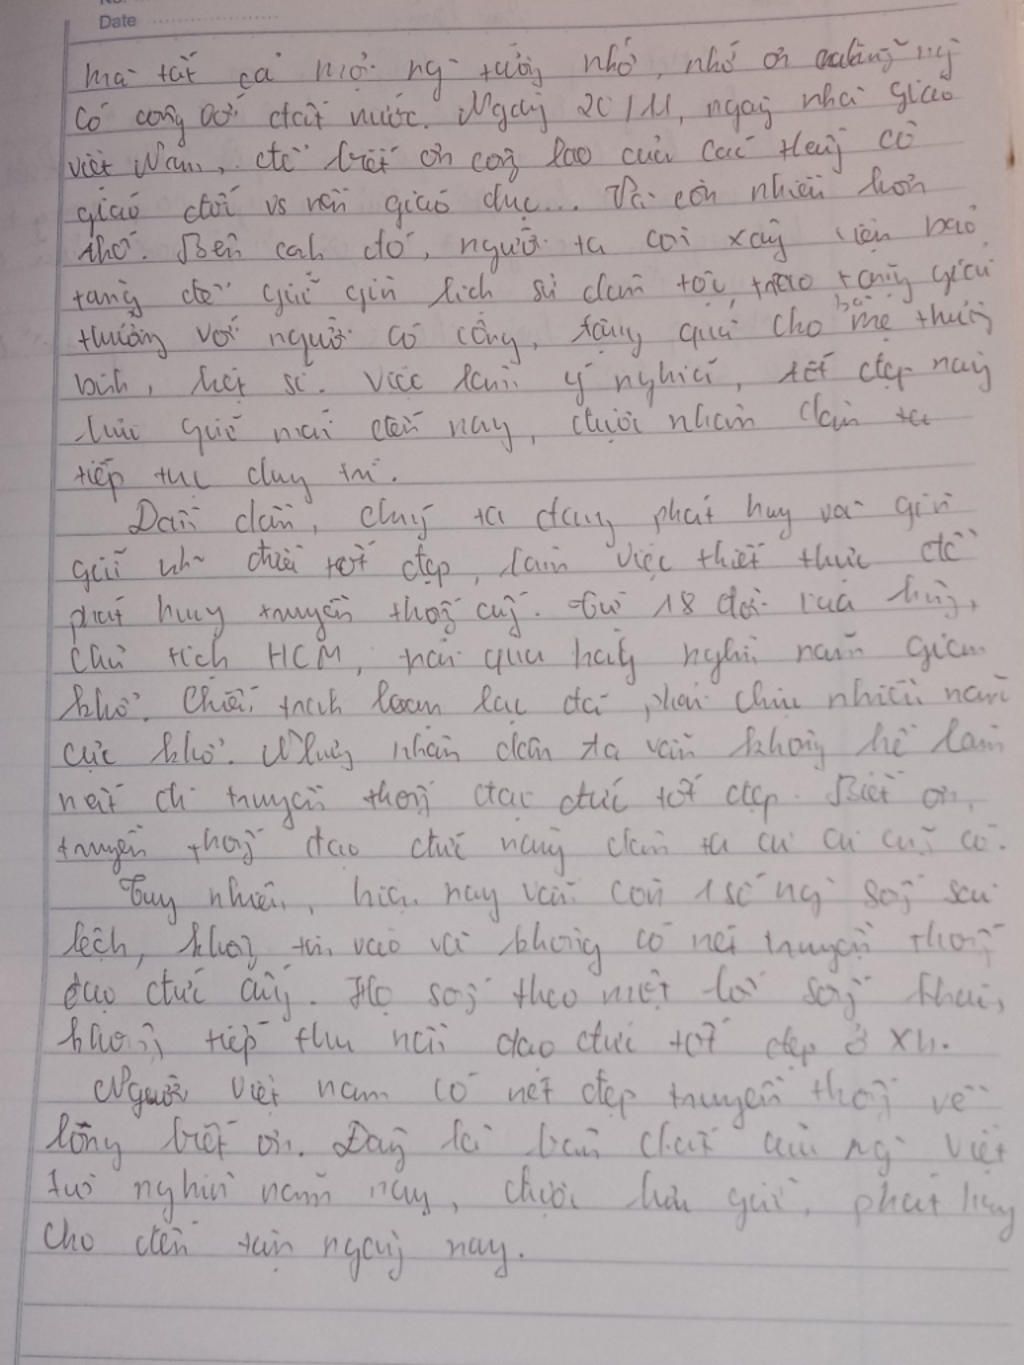 Date
mà tất cả mọi ng tưởng nhớ, nhớ ơn những ng
có công với đất nước. Ngày 20/11, ngày nhà giáo
việt Nam, để biết ơn công lao của các thầy cô
giáo đối vs nền giáo dục... Và còn nhiều hơn
thế. Bên cạh đó, người ta còn xây viện bảo
tàng để giữ gìn lịch sử dân tộc, trao tặng
thưởng với người có công, tặng quà cho bà mẹ thương
binh, liệt sĩ. Việc làm ý nghĩa, tốt đẹp này
lưu giữ mãi đến nay, được nhân dân ta
tiếp tục duy trì.
Dần dần, chúng ta đang phát huy và gìn
giữ những điều tốt đẹp, làm việc thiết thực để
phát huy truyền thống ấy. Từ 18 đời vua hùng,
chủ tịch HCM, trải qua hàng nghìn năm gian
khổ. Chiến tranh loạn lạc đã phải chịu nhiều năm
cực khổ. Nhưng nhân dân ta vẫn không hề làm
mất đi truyền thống đạo đức tốt đẹp. Biết ơn,
truyền thống đạo đức này dân ta ai ai cũng có.
Tuy nhiên, hiện nay vẫn còn 1 số ng sống sai
lệch, không tin vào và không có nét truyền thống
đạo đức ấy. Họ sống theo một lối sống khác,
không tiếp thu nền đạo đức tốt đẹp ở XH.
Người Việt nam có nét đẹp truyền thống về
lòng biết ơn. Đây là bản chất của ng Việt
từ nghìn năm nay, được lưu giữ, phát huy
cho đến tận ngày nay.